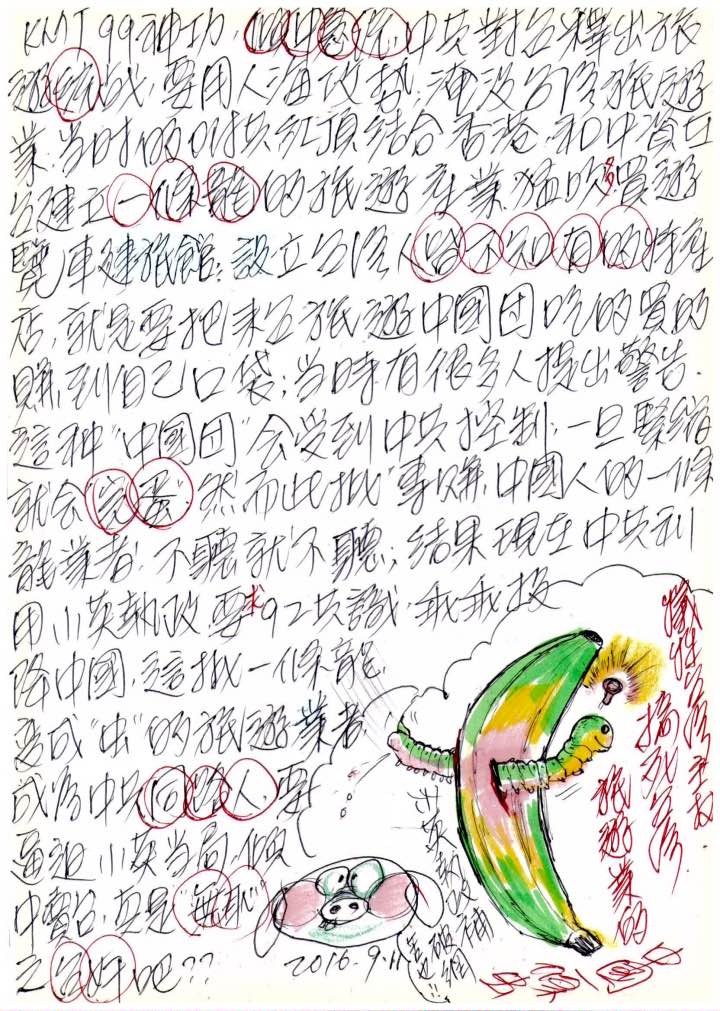 KMT 99神功，傾中賣台，中共對台釋出旅
遊統戰，要用人海攻勢，淹沒台湾旅遊
業，当时的附共紅頂結合香港，和中資在
台建立一條龍的旅遊產業，猛吹多買遊
覽車建旅館；設立台湾人皆不知有的特產
店，就是要把来台旅遊中國団吃的買的
賺到自己口袋；当時有很多人提出警告，
這种"中國団"会受到中共控制，一旦緊縮
就会完蛋，然而此批"專賺中國人的一條
龍業者，不聽就不聽；結果現在中共利
用小英執政要求92共識，乖乖投
降中國，這批一條龍，
造成"虫"的旅遊業者，
成為中共同路人，要
逼迫小英当局，傾
中賣台，真是"無恥"
之台奸吧??
2016.9.11
小英執政補
破網
犧牲台湾主权，
搞死台湾
旅遊業的